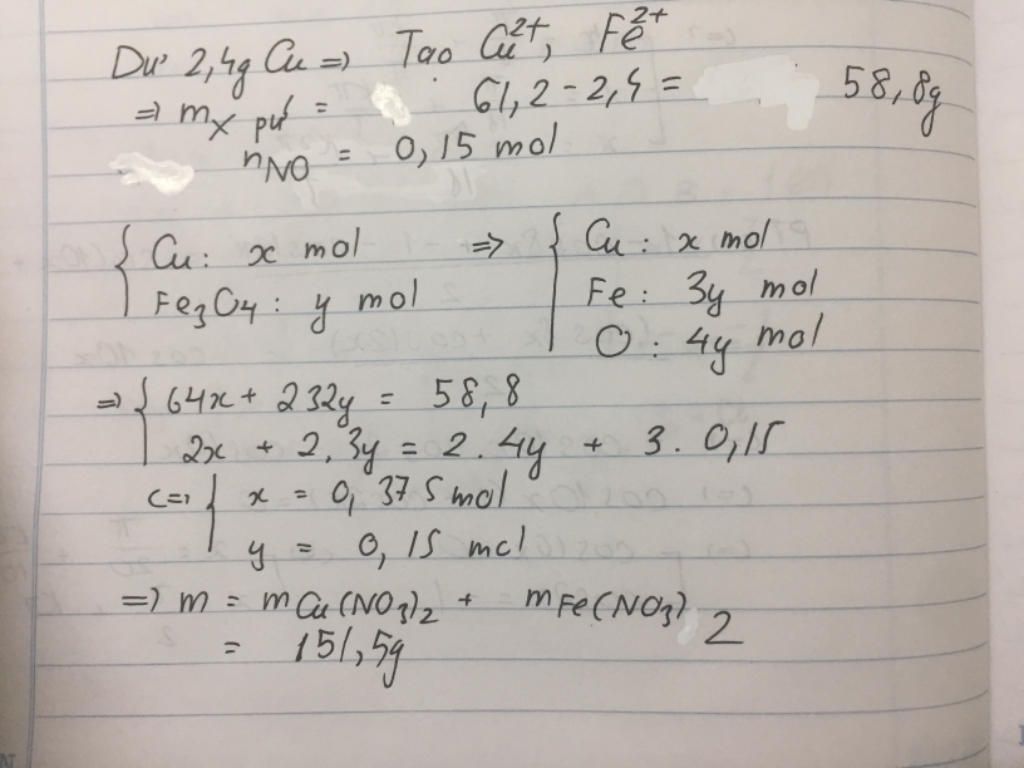 Dư 2,4g Cu => Tạo Cu²⁺, Fe²⁺
=> mX pứ = 61,2 - 2,4 = 58,8g
nNO = 0,15 mol
{ Cu: x mol => { Cu: x mol
Fe₃O₄: y mol Fe: 3y mol
O: 4y mol
=> { 64x + 232y = 58,8
2x + 2,3y = 2.4y + 3.0,15
<=> { x = 0,375 mol
y = 0,15 mol
=> m = mCu(NO₃)₂ + mFe(NO₃)₂
= 151,5g